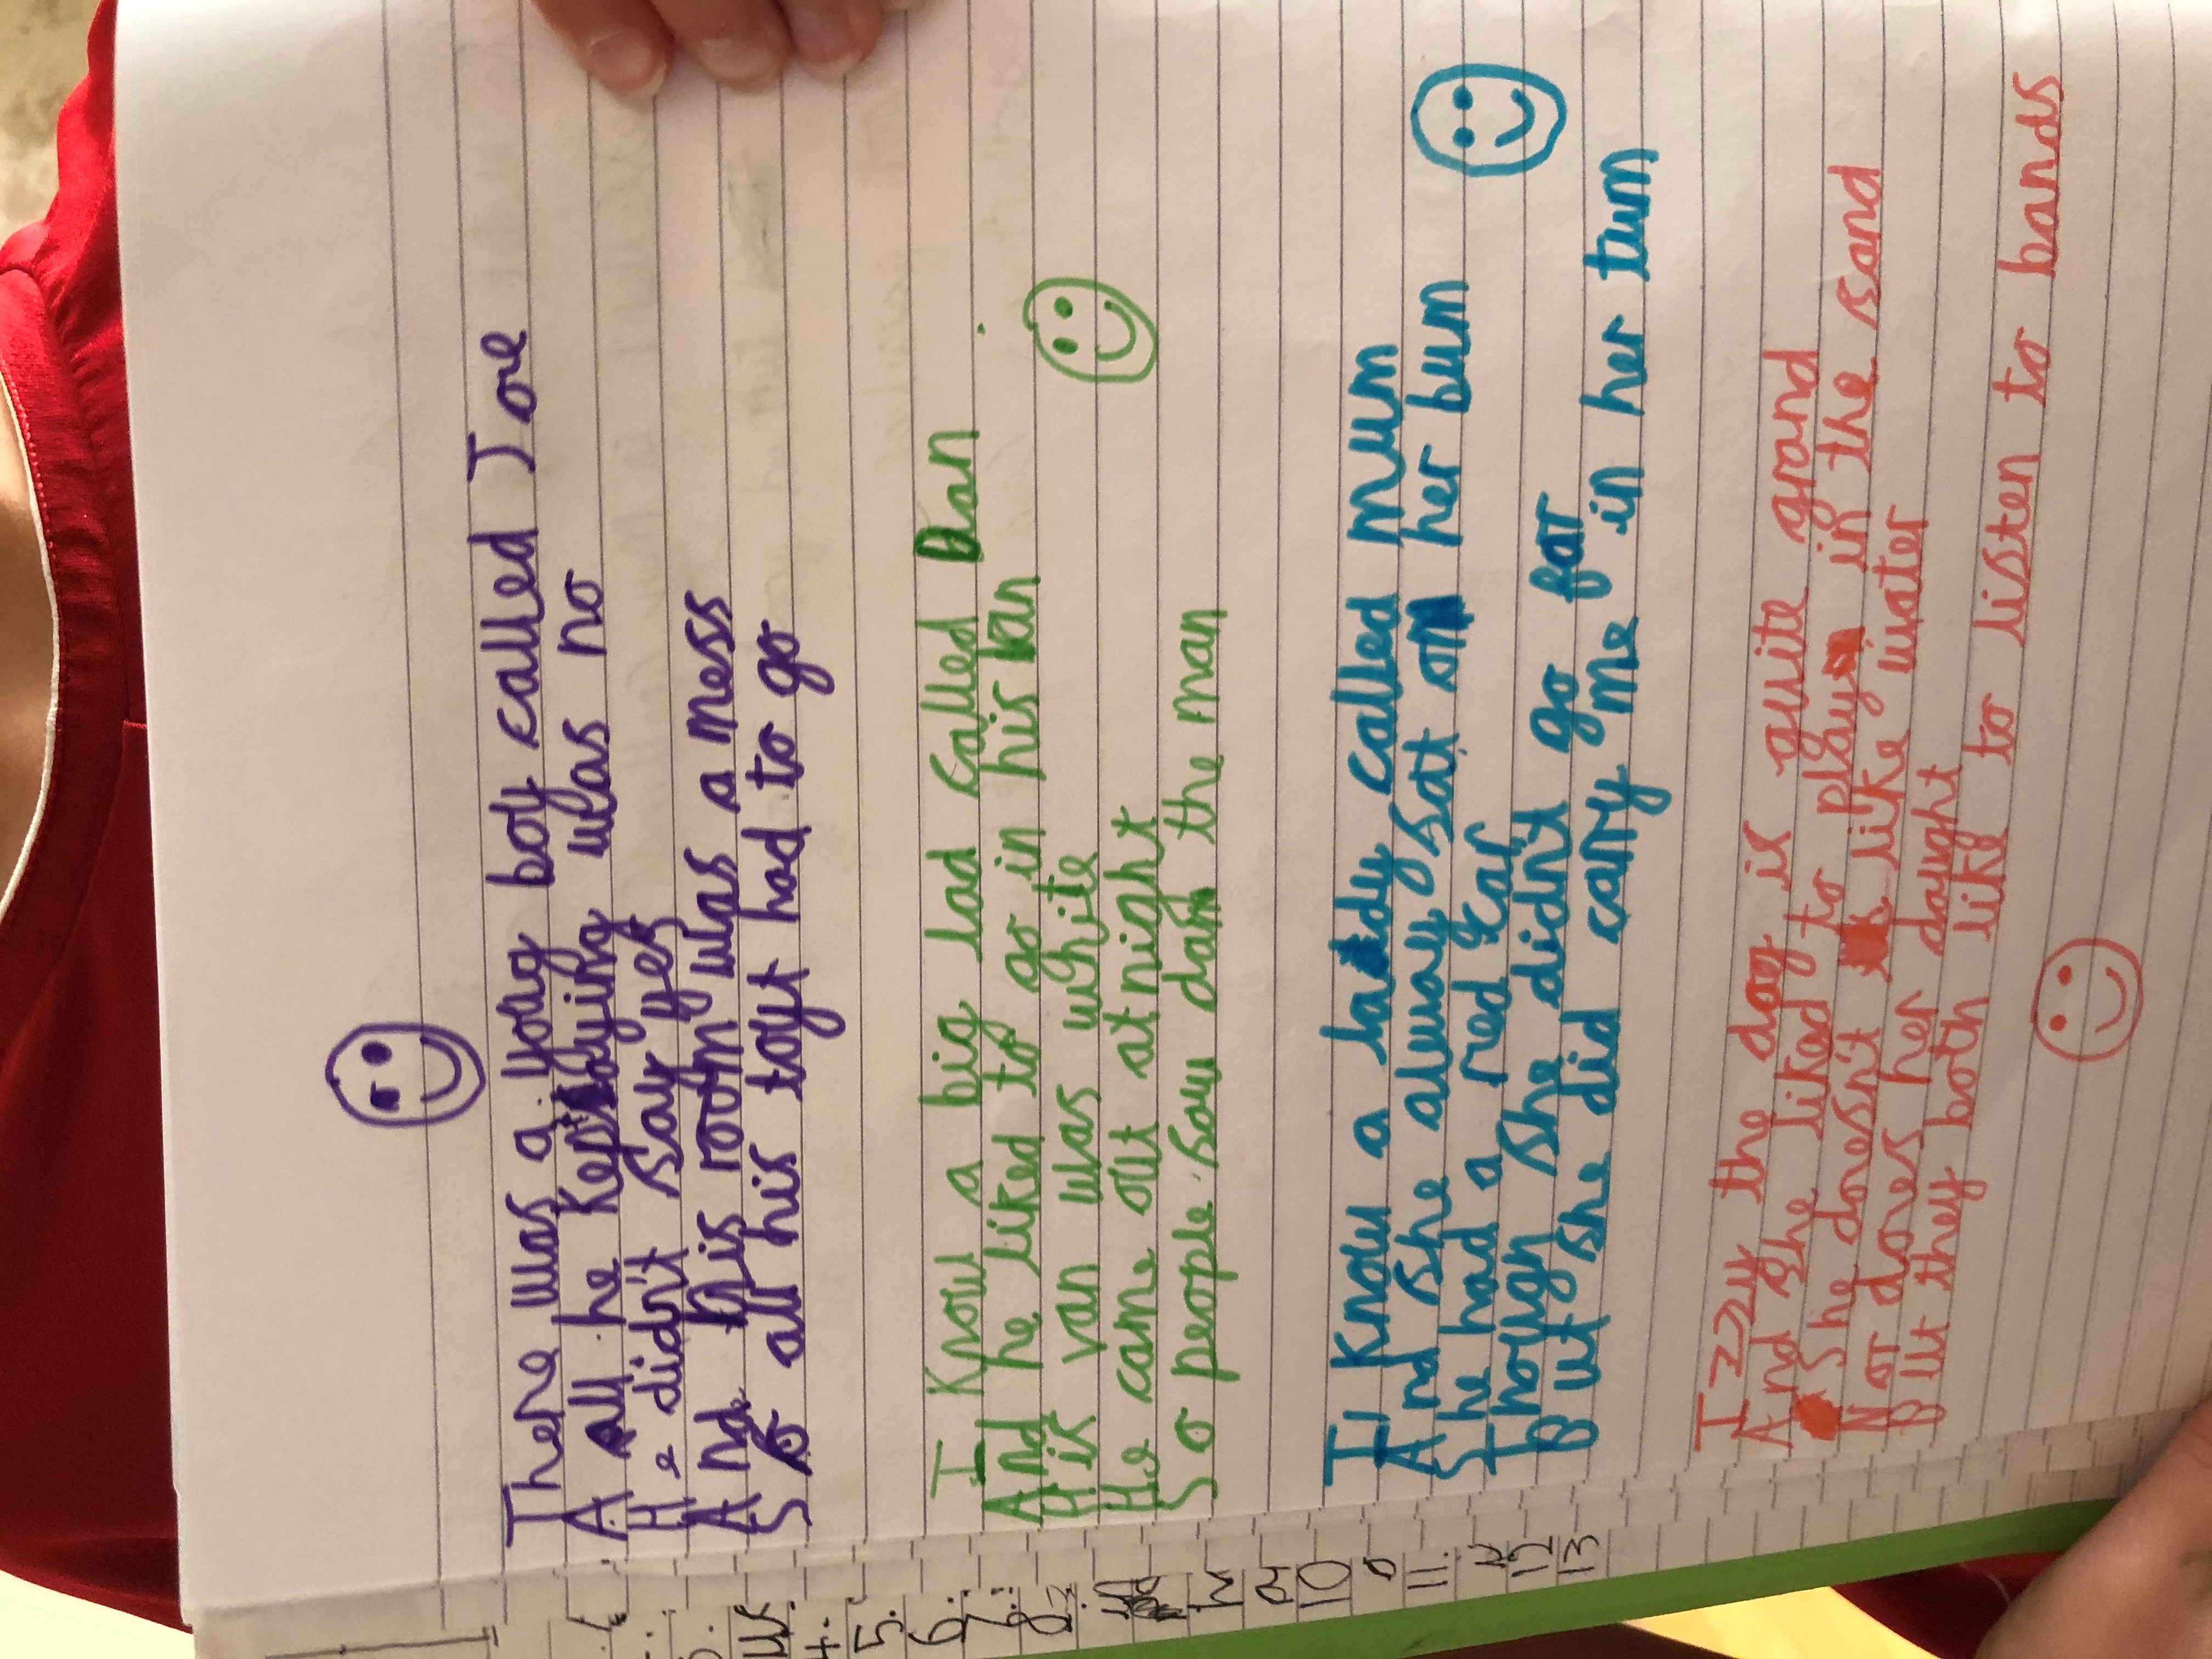 There was a yong boy called Joe
A all he Kept saying was no
He didn't say yes
And his room was a mess
So all his toys had to go
I Know a big lad called Dan
And he liked to go in his van
His van was white
He came out at night
So people saw dam the man
I Know a lady called mum
And she alway sat on her bum
She had a red car
Thougn she didn't go far
But she did carry me in her tum
Izzy the dog is quite grand
And she liked to play in the sand
She doesn't like water
Nor does her daught
But they both like to listen to bands
4.
5.
6.
7.
10
11.
12
13